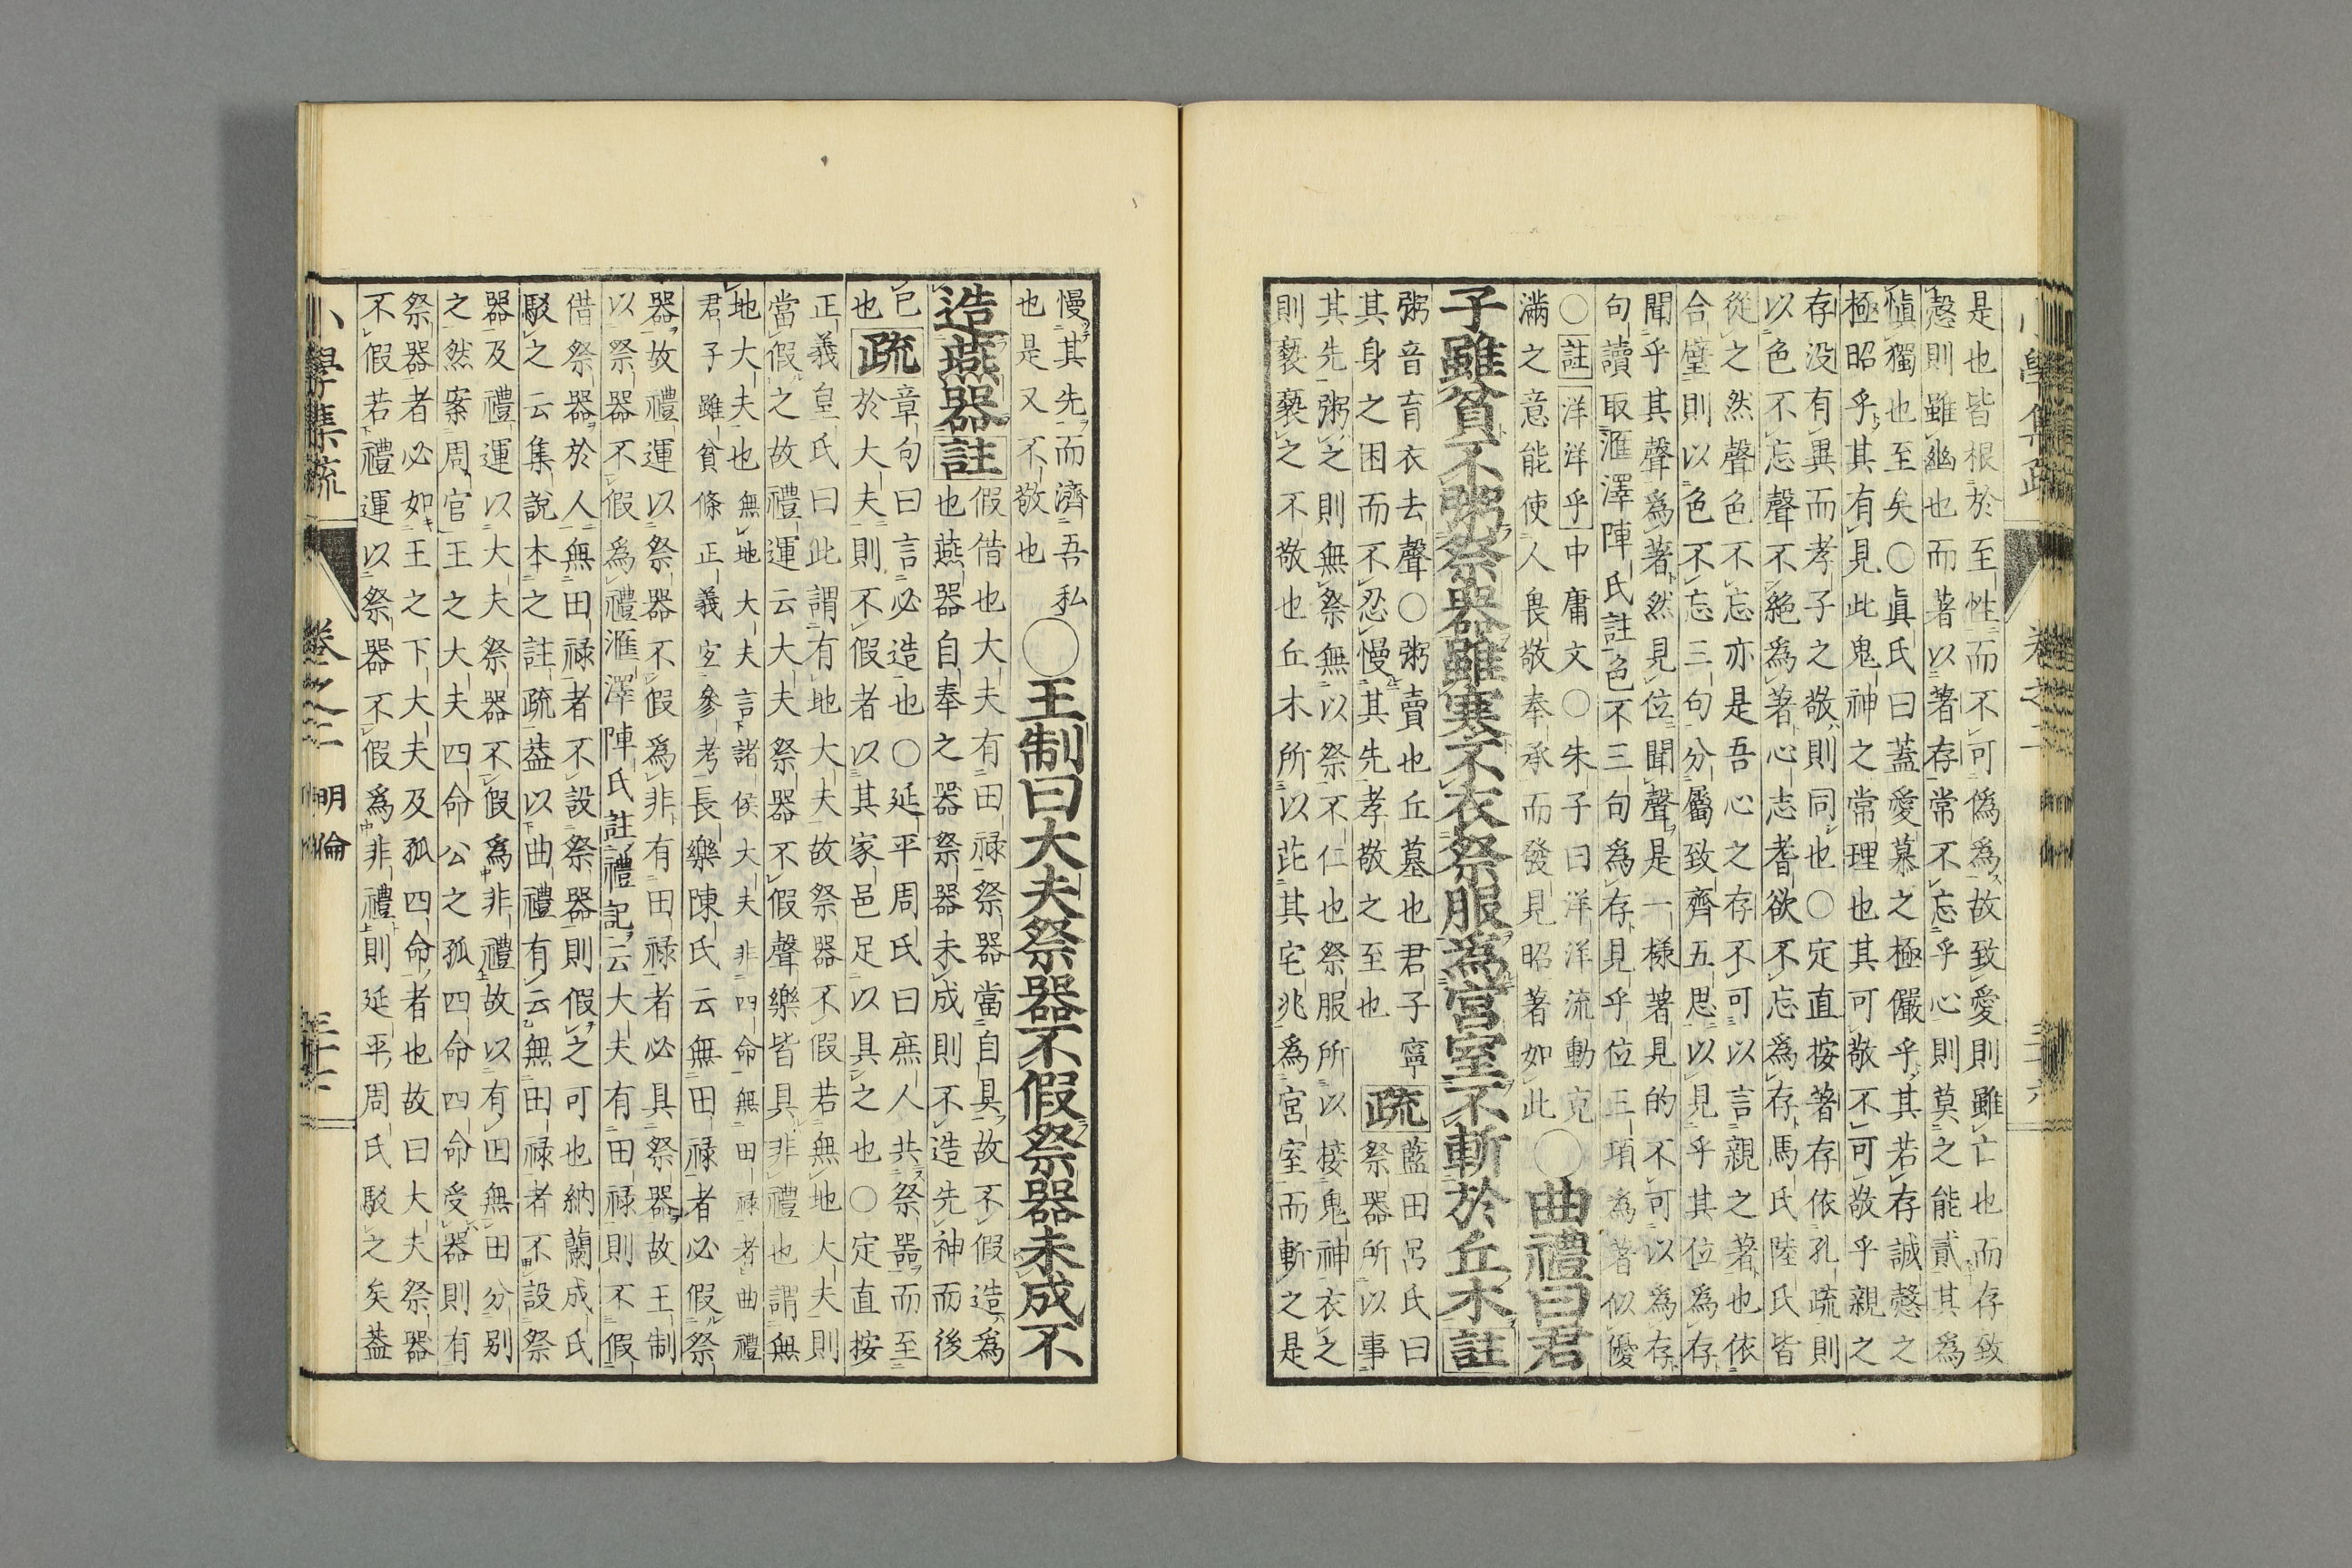 是也皆根於至性而不可僞爲故致愛則雖亡也而存致
愨則雖幽也而著以著存常不忘乎心則莫之能貳其爲
愼獨也至矣○眞氏曰蓋愛慕之極儼乎其若存誠愨之
極昭乎其有見此鬼神之常理也其可敬不可敬乎親之
存没有異而孝子之敬則同也○定直按著存依孔疏則
以色不忘聲不絶爲著心志耆欲不忘爲存馬氏陸氏皆
從之然聲色不忘亦是吾心之存不可以言親之著也依
合璧則以色不忘三句分屬致齊五思以見乎其位爲存
聞乎其聲爲著然見位聞聲是一樣著見的不可以爲存
句讀取滙澤陣氏註色不三句爲存見乎位三項為著似優
○註洋洋乎中庸文○朱子曰洋洋流動充
滿之意能使人畏敬奉承而發見昭著如此○曲禮曰君
子雖貧不粥祭器雖寒不衣祭服為宮室不斬於丘木註
粥音育衣去聲○粥賣也丘墓也君子寧
其身之困而不忍慢其先孝敬之至也疏藍田呂氏曰
祭器所以事
其先粥之則無祭無以祭不仁也祭服所以接鬼神衣之
則褻褻之不敬也丘木所以芘其宅兆爲宮室而斬之是
慢其先而濟吾私
也是又不敬也○王制曰大夫祭器不假祭器未成不
造燕器註假借也大夫有田禄祭器當自具故不假造爲
也燕器自奉之器祭器未成則不造先神而後
已
也疏章句曰言必造也○延平周氏曰庶人共祭噐而至
於大夫則不假者以其家邑足以具之也○定直按
正義皇氏曰此謂有地大夫故祭器不假若無地大夫則
當假之故禮運云大夫祭器不假聲樂皆具非禮也謂無
地大夫也無地大夫言諸侯大夫非四命無田禄者曲禮
君子雖貧條正義宜參考長樂陳氏云無田禄者必假祭
器故禮運以祭器不假爲非有田禄者必具祭器故王制
以祭器不假爲禮滙澤陣氏註禮記云大夫有田禄則不假
借祭器於人無田禄者不設祭器則假之可也納蘭成氏
駁之云集説本之註疏葢以曲禮有云無田禄者不設祭
器及禮運以大夫祭器不假爲非禮故以有田無田分别
之然案周官王之大夫四命公之孤四命四命受器則有
祭器者必如王之下大夫及孤四命者也故曰大夫祭器
不假若禮運以祭器不假爲非禮則延平周氏駁之矣葢
小學集疏　卷之二　明倫